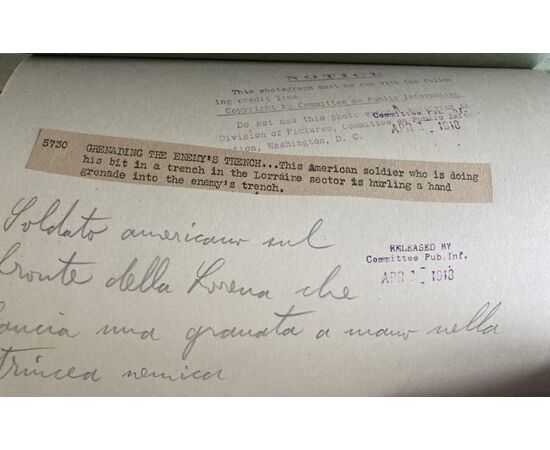 NOTICE
This photograph must be run with the follow
ing credit line.
Copyright by Committee on Public Information
Do not use this photo
Division of Pictures, Committee on Public Inf
tion, Washington, D. C.
Committee Pub. Inf.
APR 1918
5730 GRENADING THE ENEMY'S TRENCH...This American soldier who is doing
his bit in a trench in the Lorraine sector is hurling a hand
grenade into the enemy's trench.
Soldato americano sul
fronte della Lorena che
lancia una granata a mano nella
trincea nemica
RELEASED BY
Committee Pub. Inf.
APR 1918